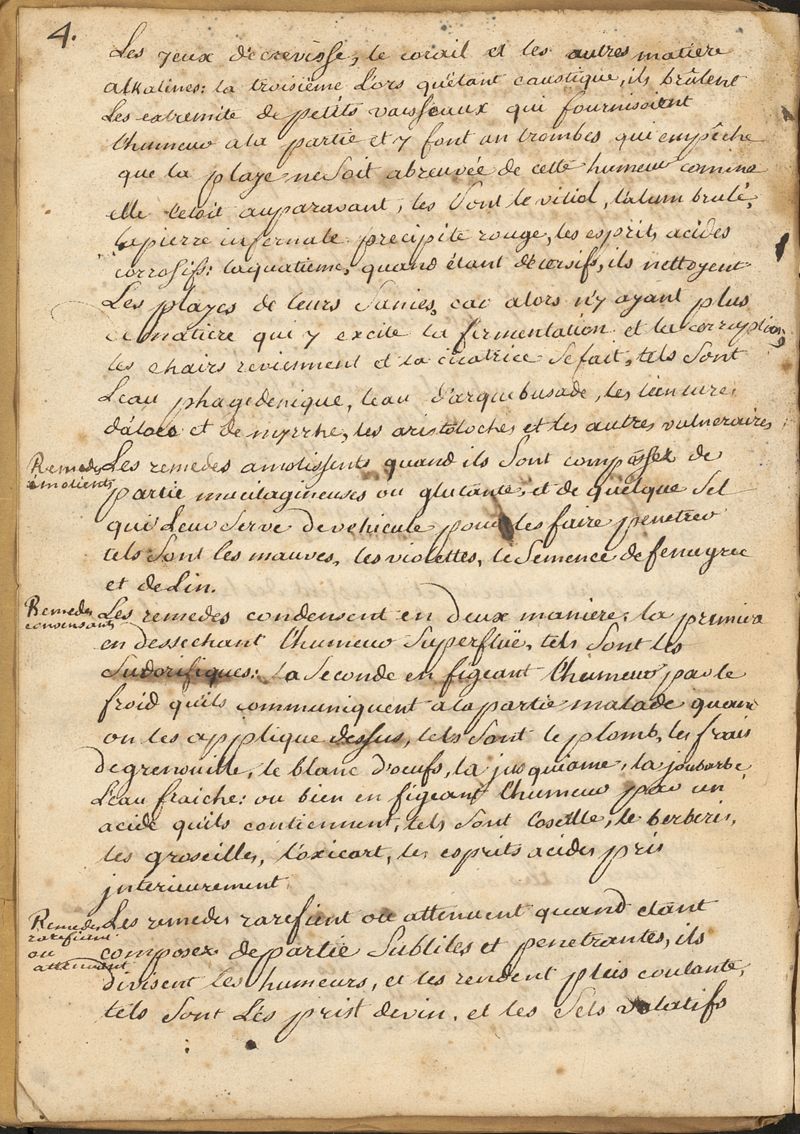 4.
Les yeux décrevisse, le corail et les autres matiere
alkalines: la troisiême Lors qu'étant caustique, ils brûlent
Les extremité de petits vaisseaux qui fournissoient
l'humeur a la partie et y font un trombes qui empêche
que la playe ne Soit abreuvée de cette humeur comme
elle letoit auparavant, les Sont le vitiol, l'alum brulé,
la pierre infernale precipité rouge, les esprits acides
corrosifs: la quatieme, quand étant décorsifs, ils nettoyent
Les playes de leurs Sanies, car alors n'y ayant plus
de matiere qui y excite la fermentation et la corruption,
les chairs reviennent et la cicatrice Se fait, tels Sont
L'eau phagedenique, l'eau d'arquebusade, les tienture,
d'aloes et de myrrhe, les aristoloches et les autres vulneraires
Remedes
émolients
Les remedes amolissents quand ils Sont compossez de
partie mucilagineuses ou glutante, et de quelque Sel
qui Leur Serve de vehicule pour les faire penetrer
tels Sont les mauves, les violettes, le Semence de fenugrec
et de Lin.
Remedes
consensants
Les remedes condensent en deux maniere, la premiere
en dessechant l'humeur Superfluë, tels Sont les
Sudorifiques: La Seconde en figeant l'humeur par le
froid qu'ils communiquent a la partie malade quand
on les applique dessus, tels Sont le plomb, les frais
de grenouille, le blanc d'oeufs, la jusquiame, la joubarbe
L'eau fraiche: ou bien en figeant l'humeur par un
acide qu'ils contiennent, tels Sont l'oseille, le berberis,
les groseilles, l'oxicart, les esprits acides pris
jnterieurement
Remedes
rarefient
ou
attenuant
Les remedes rarefient ou attenuent quand étant
composez de partie Subtiles et penetrantes, ils
divisent les humeurs, et les rendent plus coulante,
tels Sont Les prist de vin, et les Sels volatifs